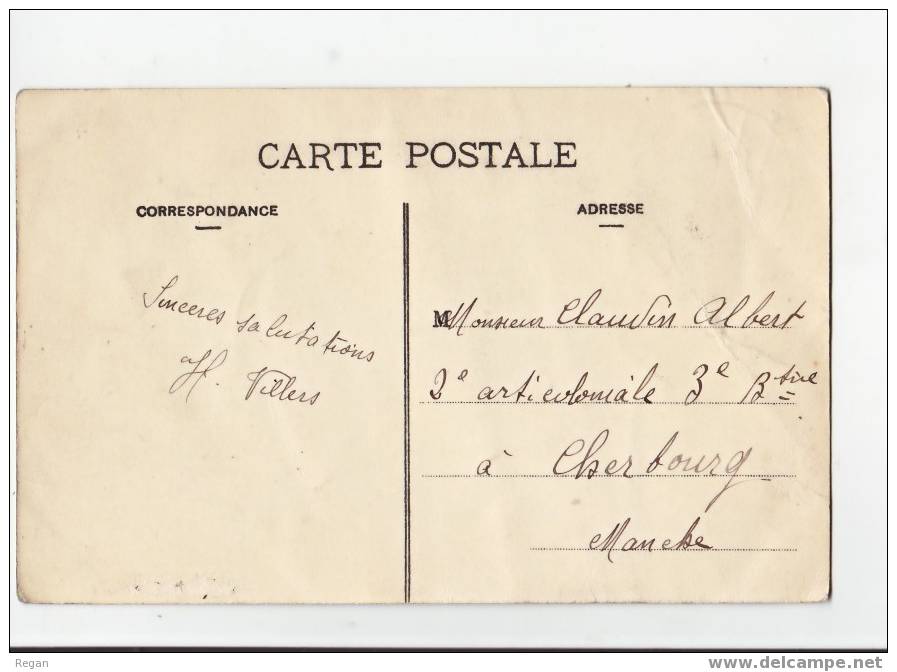 CARTE POSTALE
CORRESPONDANCE
Sinceres salutations
H. Villers
ADRESSE
M Monsieur Claudin Albert
2e arti coloniale 3e Btrie
à Cherbourg
Manche
Regan
www.delcampe.net